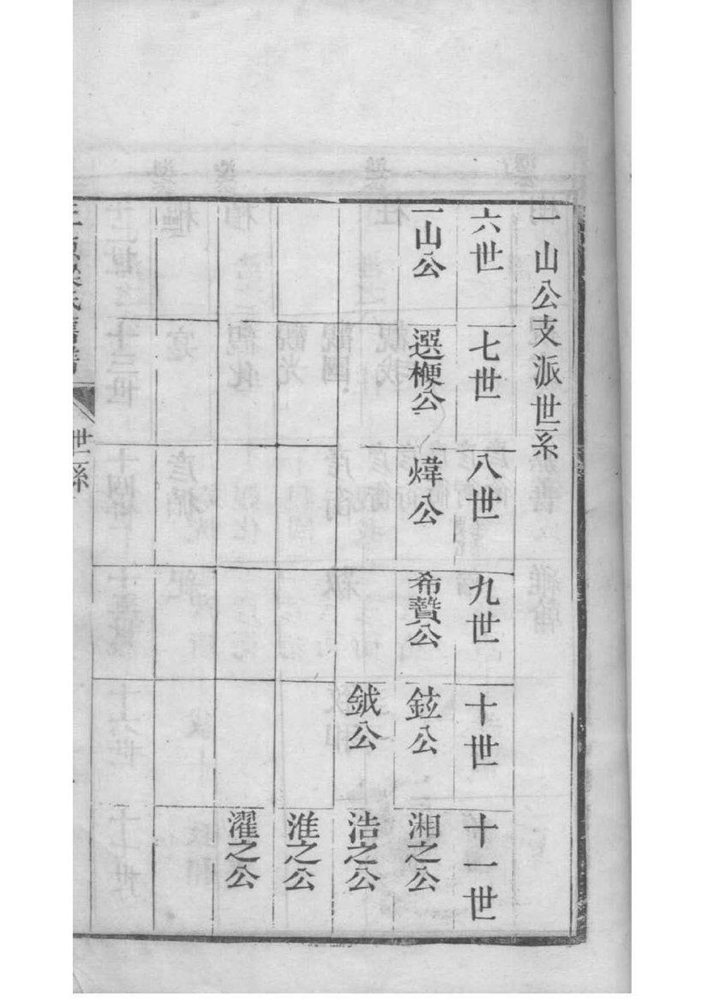 一山公支派世系
六世
七世
八世
九世
十世
十一世
一山公
選楩公
煒公
希贊公
鉉公
湘之公
鉞公
浩之公
淮之公
濯之公
世系